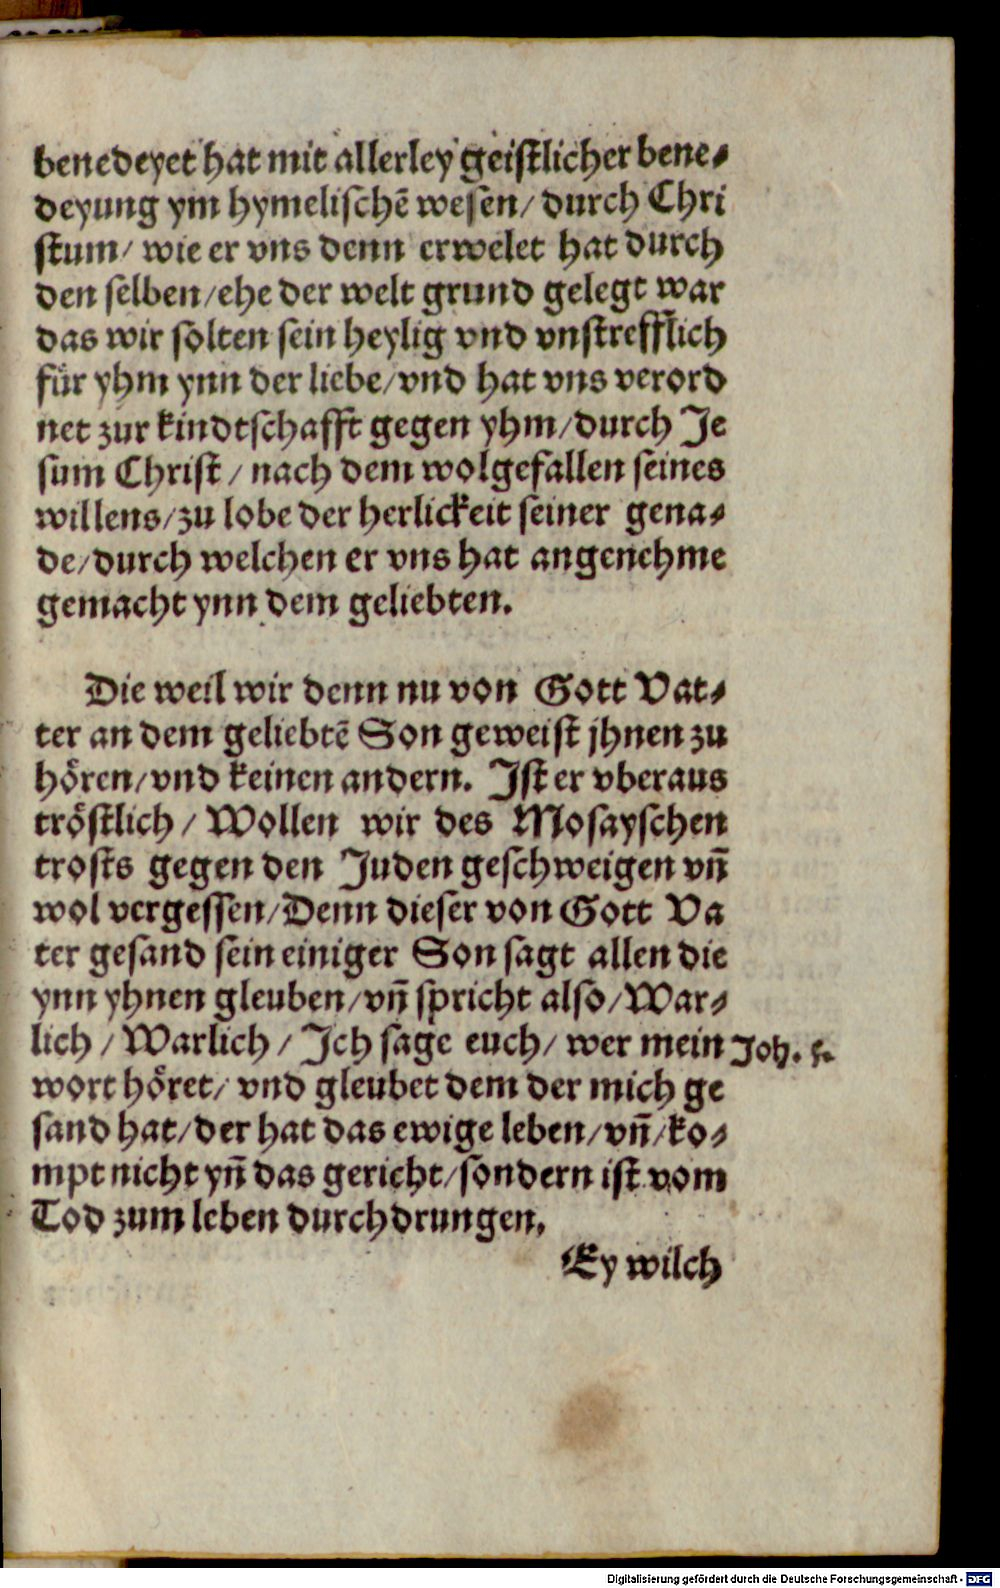 benedeyet hat mit allerley geistlicher bene⸗
deyung ym hymelischē wesen/ durch Chri
stum/ wie er vns denn erwelet hat durch
den selben/ehe der welt grund gelegt war
das wir solten sein heylig vnd vnstrefflich
für yhm ynn der liebe/vnd hat vns verord
net zur kindtschafft gegen yhm/durch Je
sum Christ / nach dem wolgefallen seines
willens/zu lobe der herlickeit seiner gena⸗
de/durch welchen er vns hat angenehme
gemacht ynn dem geliebten.
Die weil wir denn nu von Gott Vat⸗
ter an dem geliebtē Son geweist jhnen zu
hören/vnd keinen andern. Ist er vberaus
tröstlich / Wollen wir des Mosayschen
trosts gegen den Juden geschweigen vn̄
wol vergessen/Denn dieser von Gott Va
ter gesand sein einiger Son sagt allen die
ynn yhnen gleuben/vn̄ spricht also/War⸗
lich / Warlich / Ich sage euch/ wer mein Joh. 5.
wort höret/ vnd gleubet dem der mich ge
sand hat/der hat das ewige leben/vn̄/ko⸗
mpt nicht yn̄ das gericht/sondern ist vom
Tod zum leben durchdrungen,
Ey wilch
Digitalisierung gefördert durch die Deutsche Forschungsgemeinschaft - DFG